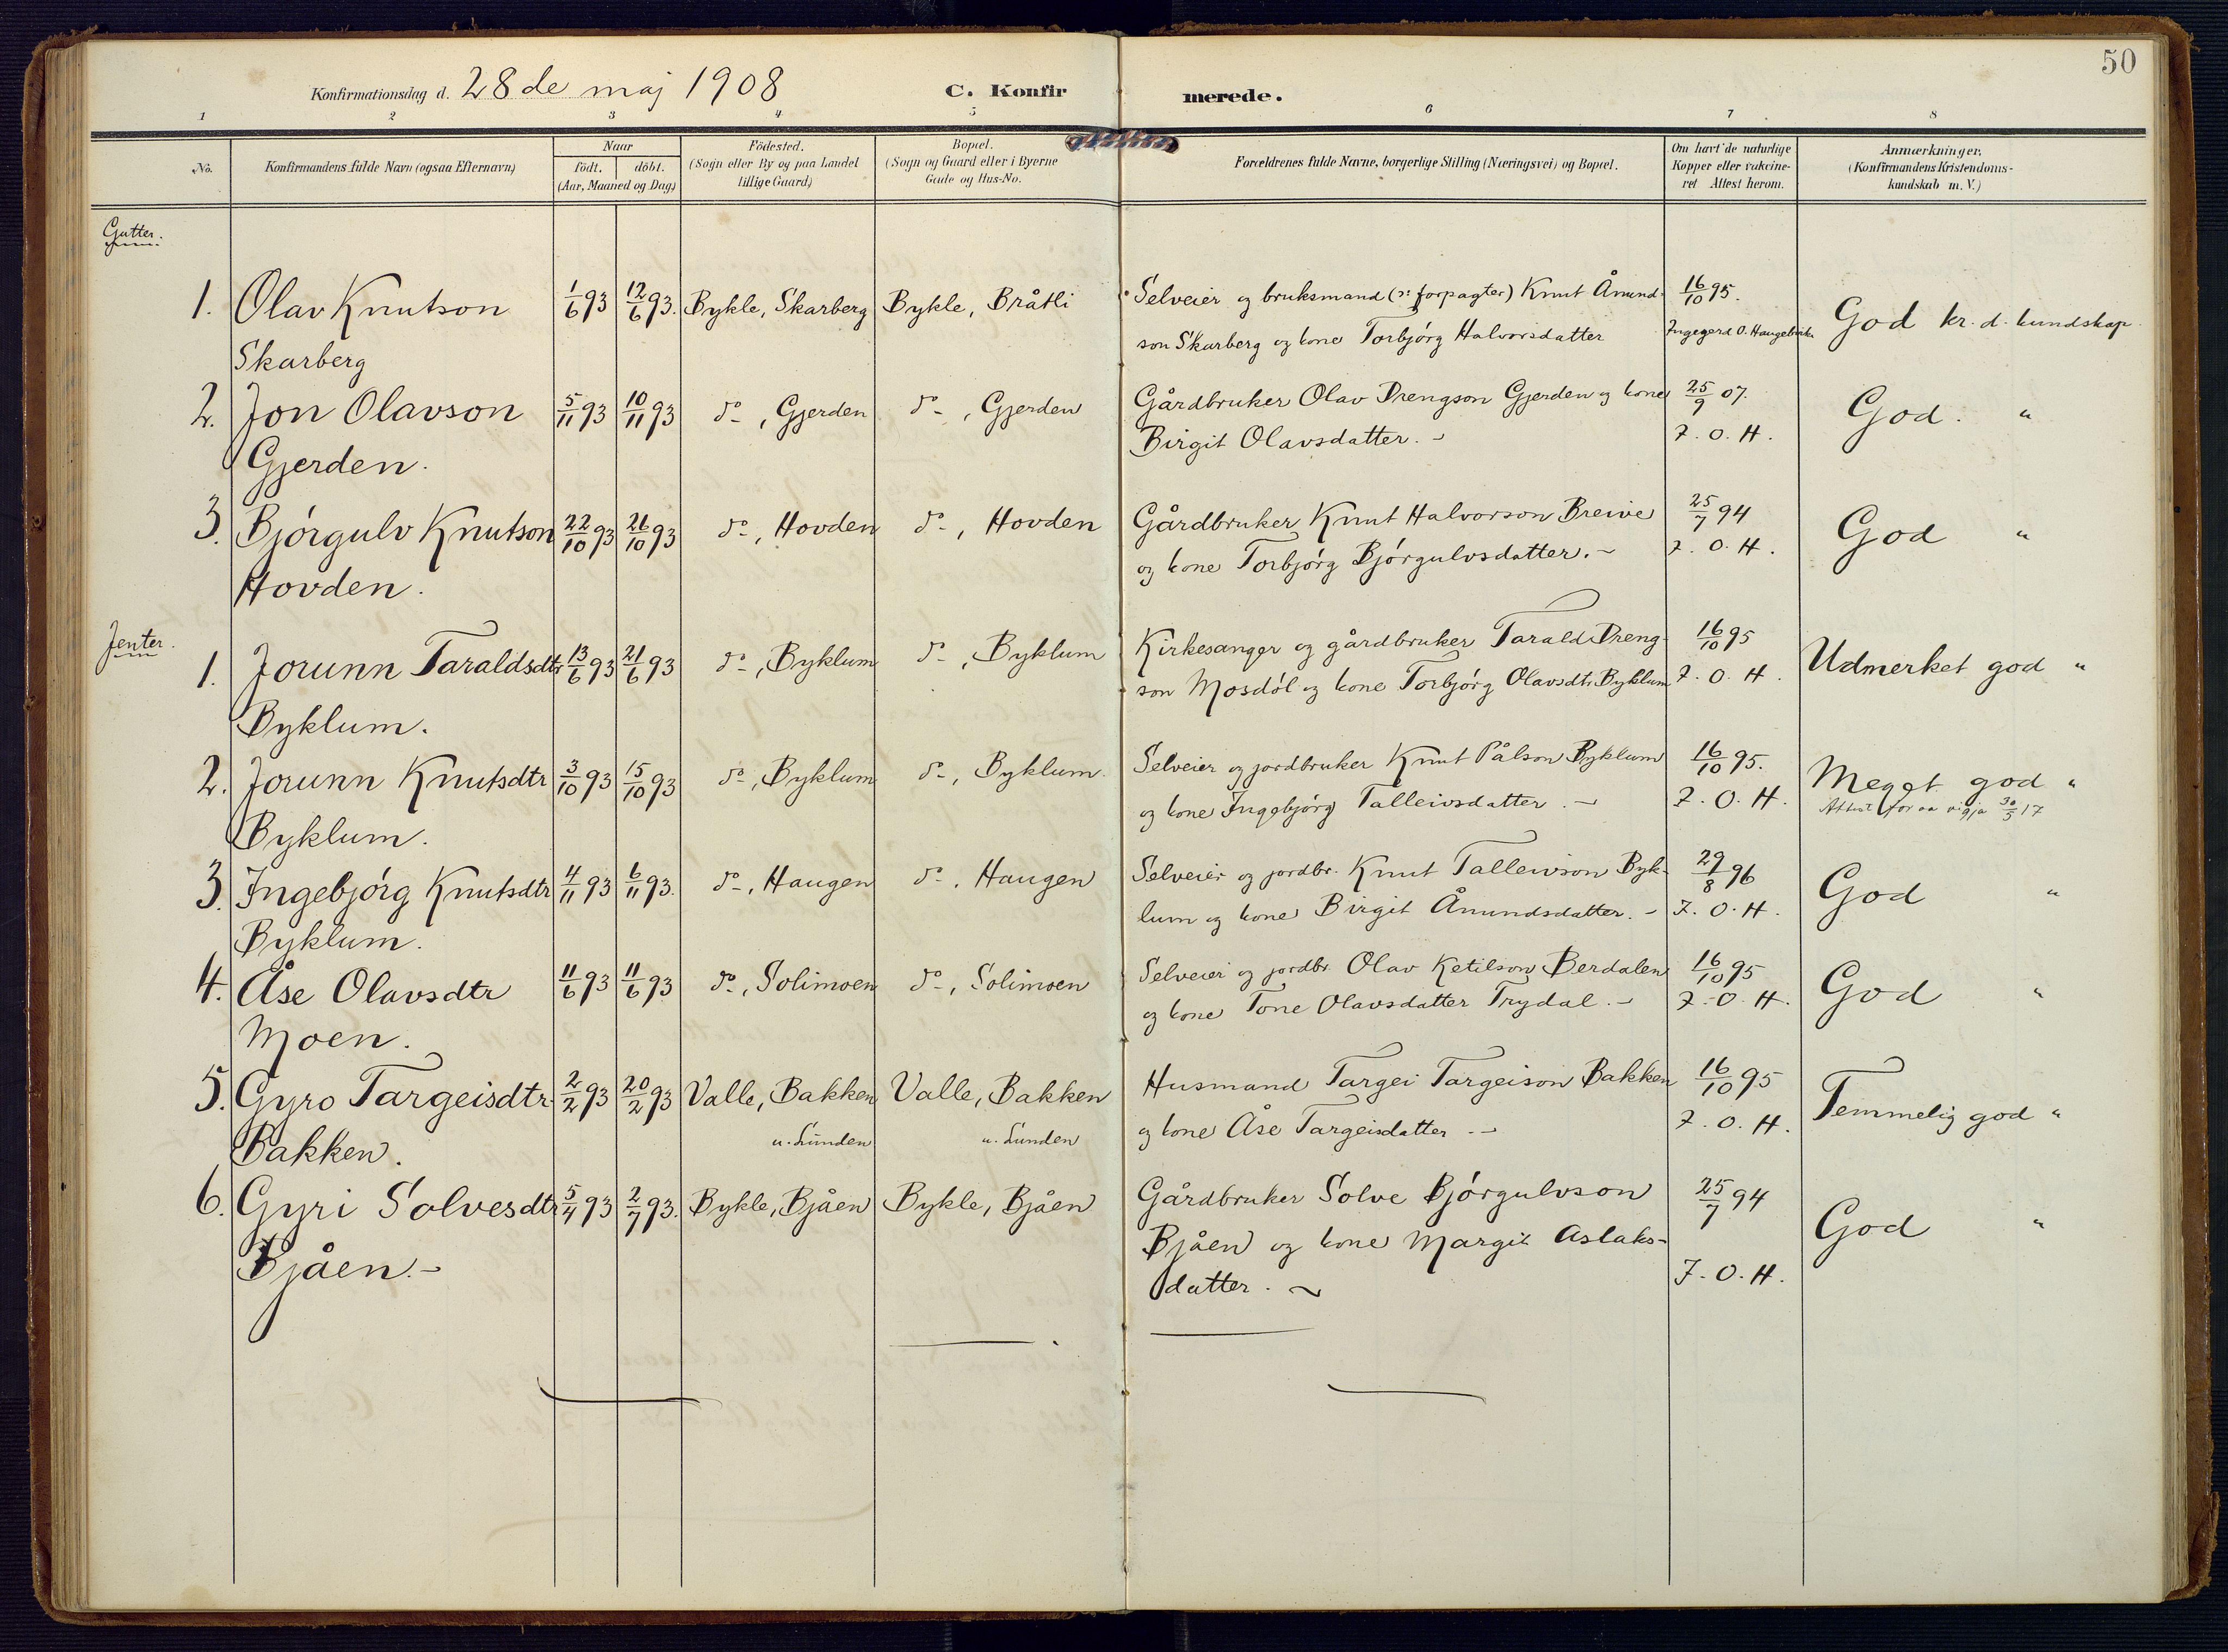 50
Konfirmationsdag d. 28de maj 1908 C. Konfirmerede.
1 2 3 4 5 6 7 8
No.
Konfirmandens fulde Navn (ogsaa Efternavn)
Naar
födt. döbt.
(Aar, Maaned og Dag)
Födested.
(Sogn eller By og paa Landet
tillige Gaard)
Bopæl.
(Sogn og Gaard eller i Byerne
Gade og Hus-No.
Forældrenes fulde Navne, borgerlige Stilling (Næringsvei) og Bopæl.
Om havt de naturlige
Kopper eller vakcine-
ret Attest herom.
Anmærkninger,
(Konfirmandens Kristendoms-
kundskab m. V.)
Gutter.
1. Olav Knutson 1/6 93 12/6 93. Bykle, Skarberg Bykle, Bråtli Selveier og bruksmand (ɔ: forpagter) Knut Åmund- 16/10 95. God kr. d. kundskap.
Skarberg son Skarberg og kone Torbjörg Halvorsdatter Ingegerd O. Haugebirke
2. Jon Olavson 5/11 93 10/11 93 do, Gjerden do, Gjerden Gårdbruker Olav Drengson Gjerden og kone 25/9 07. God. "
Gjerden. Birgit Olavsdatter. - I. O. H.
3. Bjórgulv Knutson 22/10 93 26/10 93 do, Hovden do, Hovden Gårdbruker Knut Halvorson Breive 25/7 94 God "
Hovden. og kone Torbjórg Bjórgulvsdatter. - I. O. H.
Jenter.
1. Jorunn Taraldsdtr 13/6 93 21/6 93 do, Byklum do, Byklum Kirkesanger og gårdbruker Tarald Dreng- 16/10 95 Udmerket god "
Byklum. son Mosdól og kone Torbjórg Olavsdtr Byklum I. O. H.
2. Jorunn Knutsdtr 3/10 93 15/10 93 do, Byklum do, Byklum Selveier og jordbruker Knut Pålson Byklum 16/10 95. Meget god "
Byklum. og kone Ingebjórg Talleivsdatter. - I. O. H. Attest for aa vigja 30/5 17
3. Ingebjórg Knutsdtr 4/11 93 6/11 93. do, Haugen do, Haugen Selveier og jordbr. Knut Talleivson Byk- 29/8 96 God "
Byklum. lum og kone Birgit Åmundsdatter. - I. O. H.
4. Åse Olavsdtr 11/6 93 11/6 93 do, Solimoen do, Solimoen Selveier og jordbr. Olav Ketilson Berdalen 16/10 95 God "
Moen. og kone Tone Olavsdatter Trydal. - I. O. H.
5. Gyro Targeisdtr 2/2 93 20/2 93 Valle, Bakken Valle, Bakken Husmand Targei Targeison Bakken 16/10 95 Temmelig god "
Bakken. u. Lunden u. Lunden og kone Åse Targeisdatter -- I. O. H.
6. Gyri Solvesdtr 5/4 93 2/7 93. Bykle, Bjåen Bykle, Bjåen Gårdbruker Solve Bjórgulvson 25/7 94 God "
Bjåen.- Bjåen og kone Margit Aslaks-
datter. ~ I. O. H.